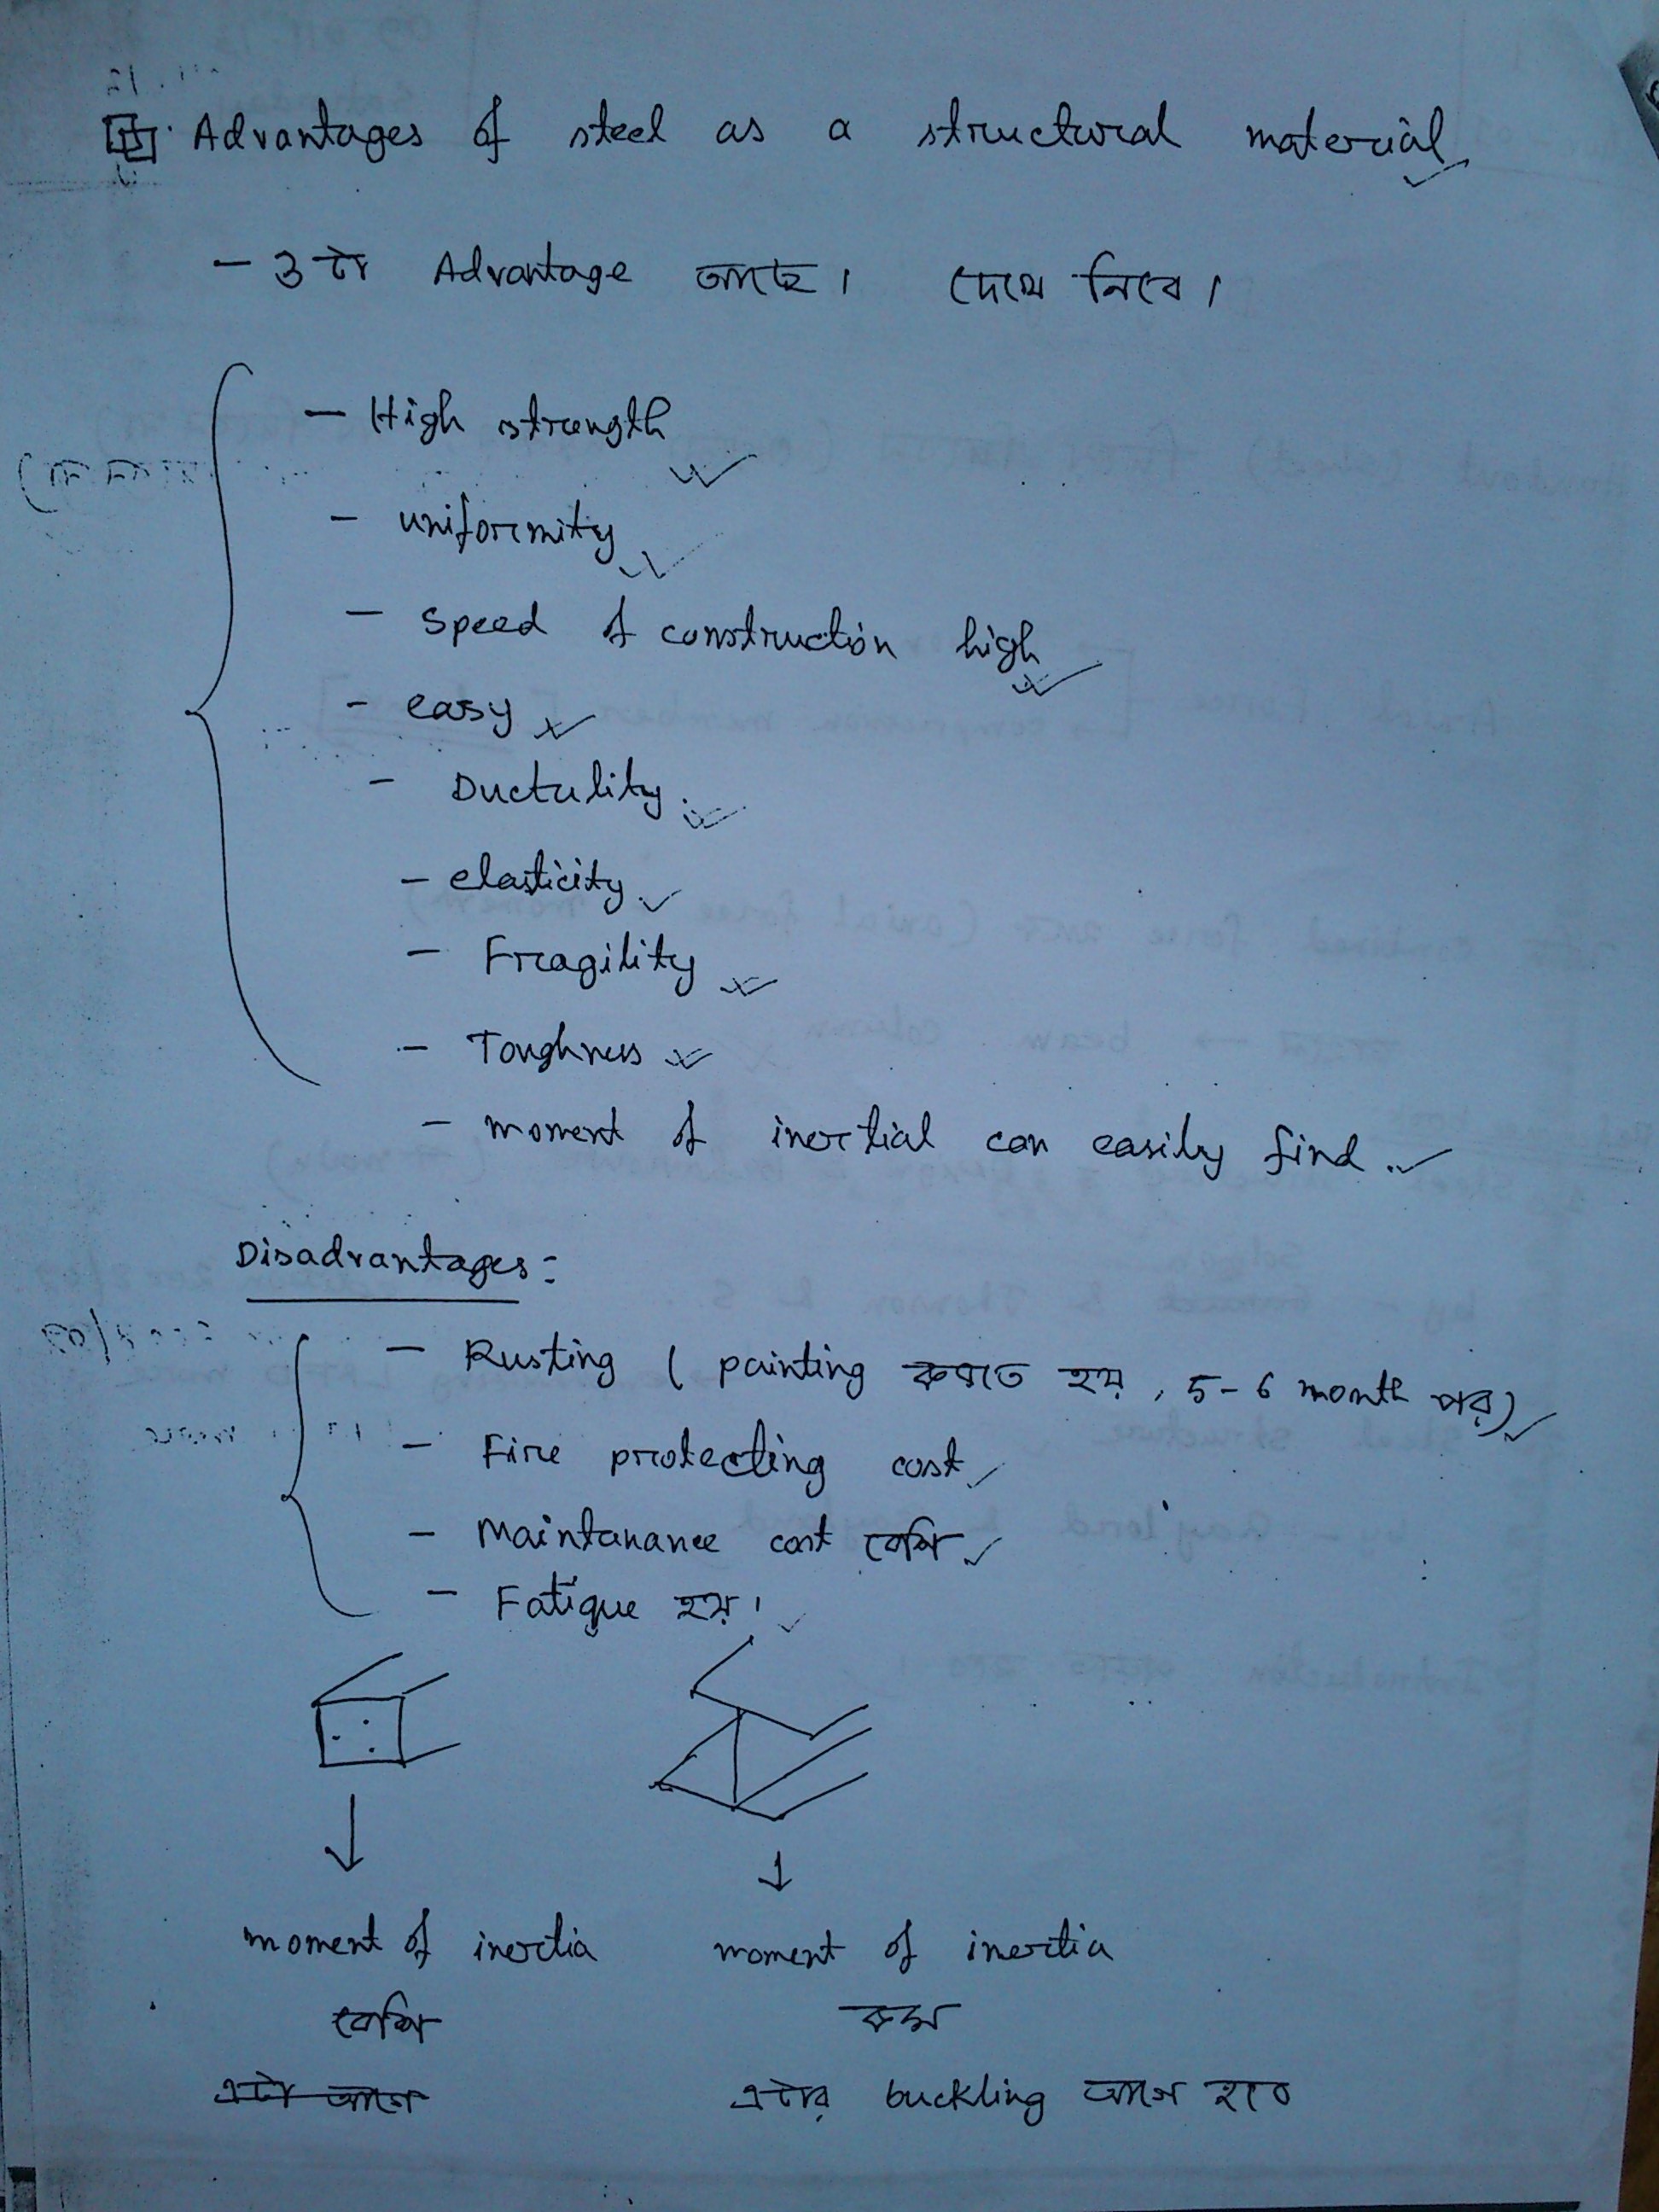 Advantages of steel as a structural material
- ৩টা Advantage আছে। দেখে নিবে।
- High strength
- uniformity
- speed of construction high
- easy
- Ductulity
- elasticity
- Fragility
- Toughness
- moment of inertial can easily find.
Disadvantages:
- Rusting (painting করতে হয়, 5-6 month পর)
- Fire protecting cost
- Maintanance cost বেশি
- Fatigue হয়।
moment of inertia moment of inertia
বেশি কম
এটা আগে এটার buckling আগে হবে